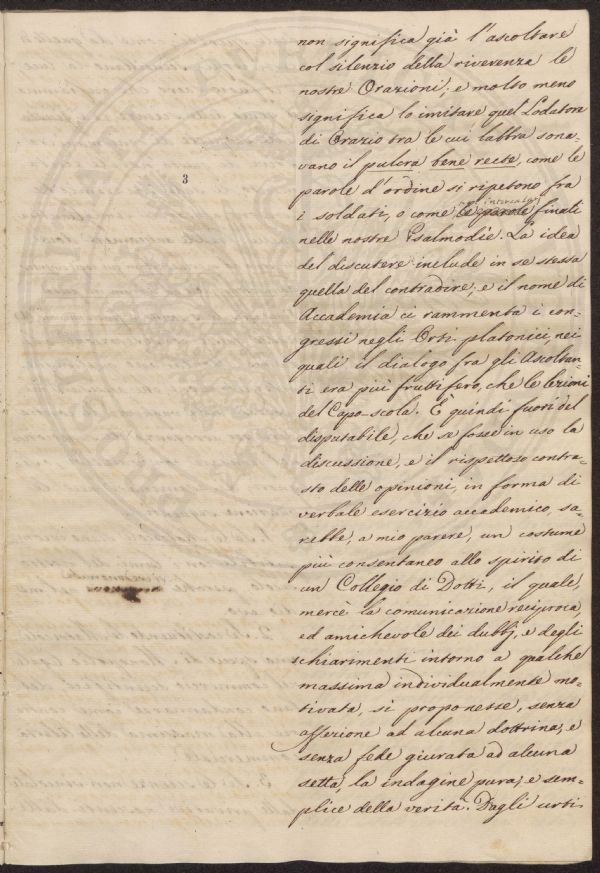 non significa già l'ascoltare
col silenzio della riverenza le
nostre Orazioni; e molto meno
significa lo imitare quel Lodatore
di Orazio tra le cui labbra sona-
vano il pulcra bene recte, come le
3
parole d'ordine si ripetono fra
intercalari
i soldati, o come le parole finali
nelle nostre Psalmodie. La idea
del discutere include in se stessa
quella del contradire; e il nome di
Accademia ci rammenta i con-
gressi negli Orti platonici, nei
quali il dialogo fra gli Ascoltan-
ti era più fruttifero, che le lezioni
del Capo-scola. È quindi fuori del
disputabile, che se fosse in uso la
discussione, e il rispettoso contra-
sto delle opinioni, in forma di
verbale esercizio accademico, sa-
rebbe, a mio parere, un costume
più consentaneo allo spirito di
un Collegio di Dotti, il quale,
mercè la comunicazione reciproca,
ed amichevole dei dubbj, e degli
schiarimenti intorno a qualche
massima individualmente mo-
tivata, si proponesse, senza
affezione ad alcuna dottrina, e
senza fede giurata ad alcuna
setta, la indagine pura, e sem-
plice della verità. Dagli urti